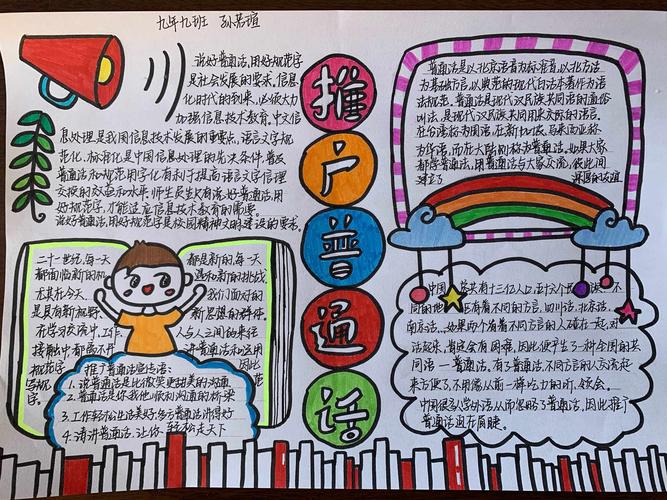 九年九班 孙若瑄
说好普通话,用好规范字
是社会发展的要求。信息
化时代的到来,必须大力
加强信息技术教育,中文信
息处理是我国信息技术发展的重要点,语言文字规
范化、标准化是中国信息处理的先决条件,普及
普通话和规范用字化有利于提高语言文字信理
交换的效率和水平,师生员生只有说好普通话,用
好规范字,才能适应信息技术教育的需要。
说好普通话,用好规范字是校园精神文明建设的要求。
推
户
普
通
话
普通话是以北京语音为标准音,以北方话
为基础方言,以典范的现代白话本著作为语
法规范。普通话是现代汉民族共同语的通俗
叫法,是现代汉民族共同用来交际的语言。
在台湾称为国语,在新加坡、马来西亚称
为华语,而在大陆则称为普通话。如果大家
都学普通话,用普通话与大家交流,彼此间
建立了 深厚的友谊
二十一世纪,每一天 都是新的,每一天
都面临新的机 遇和新的挑战,
尤其在今天 我们面对的
是具有新视野、 新思想的群体,
在学习交流中,工作、 人与人之间的来往
接触中都离不开 讲普通话和运用
规范字, 因此
写规范 
字。
推广普通话宣传语:
1.说普通话是比微笑更甜美的沟通
2.普通话是你我他心灵沟通的桥梁
3.工作轻松生活美好,多亏普通话讲得好
4.请讲普通话,让你 轻松走天下
中国 共有十三亿人口,五十六个 族, 不
同的地 有着不同的方言,四川话,北京话,
南京话,...如果两个有着不同方言的人碰在一起,对
话起来,肯定会有困难,因此便产生了一种全国的共
同语——普通话。有了普通话,不同方言的人交流起
来方便了,不用像从前一样吃力的听、领会。
中国很多人学外语,从而忽略了普通话,因此推广
普通话迫在眉睫。